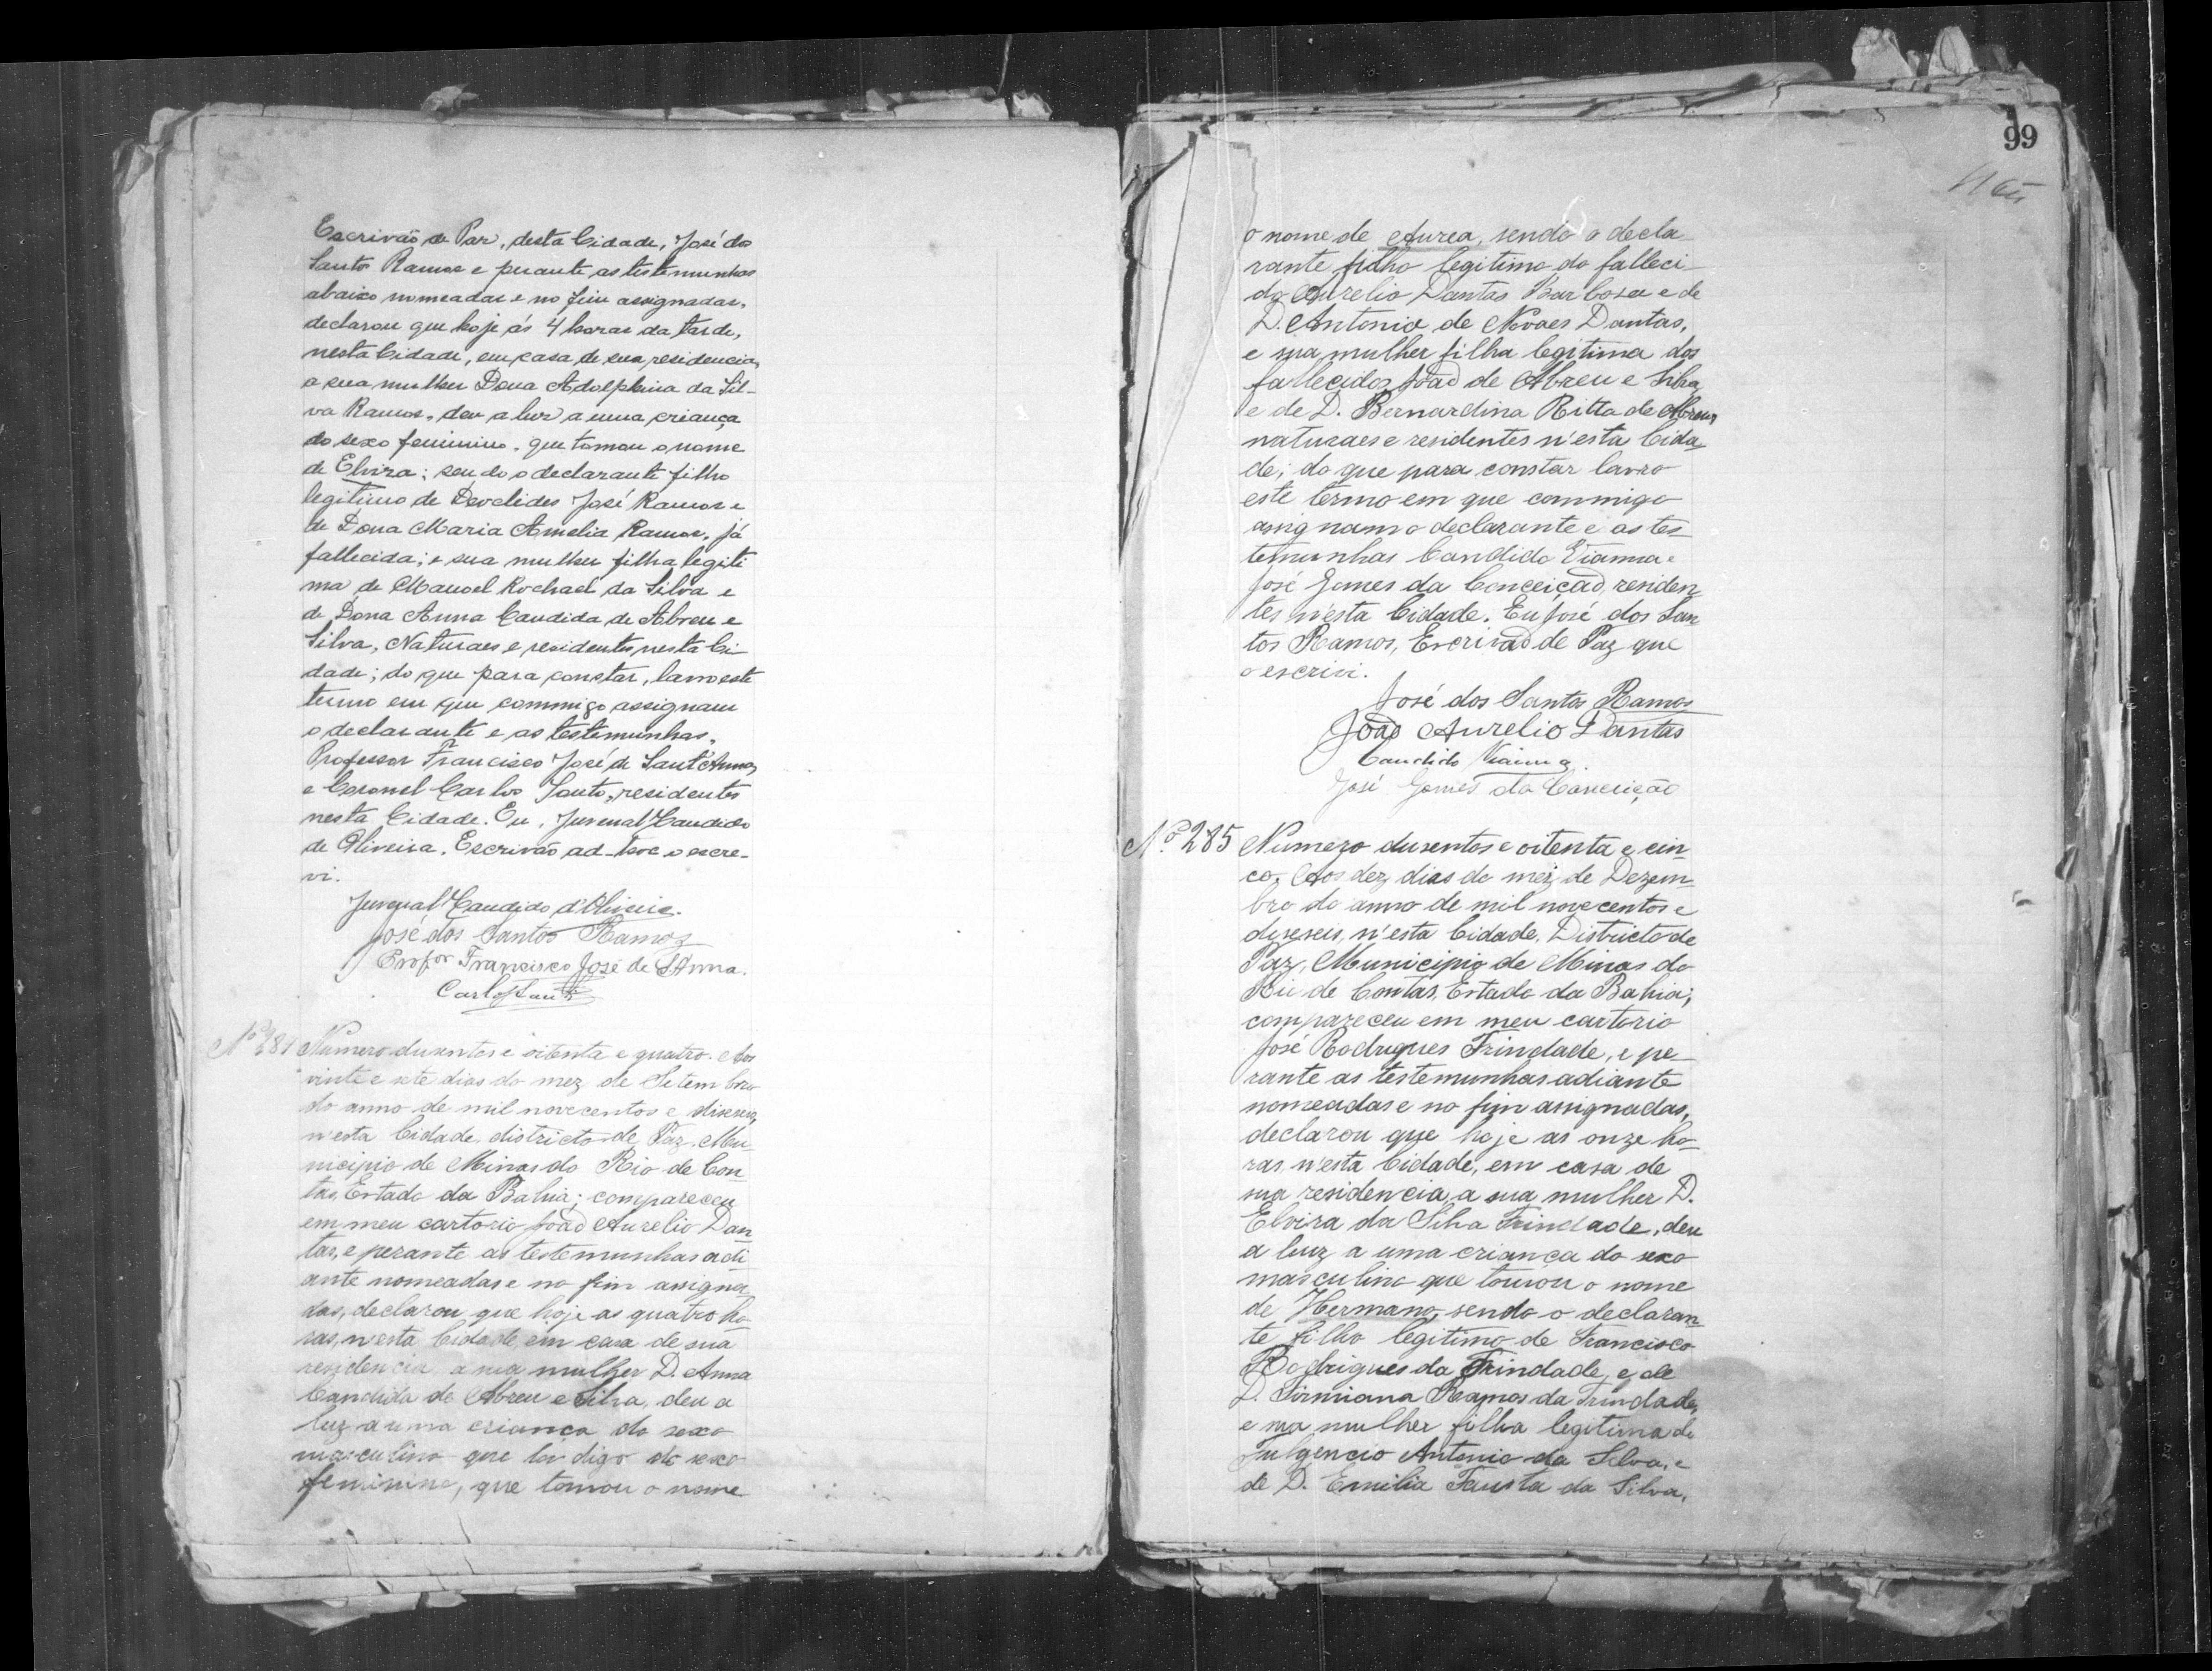 Escrivão de Paz, desta Cidade, José dos
Santos Ramos e perante as testemunhas
abaixo nomeadas e no fim assignadas,
declarou que hoje ás 4 horas da tarde,
nesta Cidade, em casa de sua residencia,
a sua mulher Dona Adolphina da Sil-
va Ramos, deu a luz a uma criança
do sexo feminino, que tomou o nome
de Elvira; sendo o declarante filho
legitimo de Deoclides José Ramos e
de Dona Maria Amelia Ramos, já
fallecida; e sua mulher filha legiti
ma de Manoel Rochael da Silva e
de Dona Anna Candida de Abreu e
Silva, Naturaes e residentes nesta Ci-
dade; do que para constar, lavro este
termo em que commigo assignam
o declarante e as testemunhas,
Professor Francisco José de Sant'Anna,
e Coronel Carlos Souto, residentes
nesta Cidade. Eu, Juvenal Candido
de Oliveira, Escrivão ad-hoc o escre-
vi.
Juvenal Candido d'Oliveira.
José dos Santos Ramos
Profor Francisco José de S'Anna.
Carlos Souto
Nº 284 Numero dusentos e oitenta e quatro. Aos
vinte e sete dias do mez de Setembro
do anno de mil novecentos e diseseis,
n'esta Cidade, districto de Paz, Mu-
nicipio de Minas do Rio de Con-
tas, Estado da Bahia; compareceu
em meu cartorio João Aurelio Dan
tas, e perante as testemunhas adi
ante nomeadas e no fim assigna
das, declarou que hoje as quatro ho-
ras, n'esta Cidade, em casa de sua
residencia, a sua mulher D. Anna
Candida de Abreu e Silva, deu a
luz a uma criança do sexo
masculino que to digo do sexo
feminino, que tomou o nome
99
o nome de Aurea, sendo o decla-
rante filho legitimo do falleci-
do Aurelio Dantas Barbosa e de
D. Antonia de Novaes Dantas,
e sua mulher filha legitima dos
fallecidos João de Abreu e Silva
e de D. Bernardina Ritta de Abreu,
naturaes e residentes n'esta Cida-
de; do que para constar lavro
este termo em que commigo
assignam o declarante e as tes-
temunhas Candido Vianna e
José Gomes da Conceição, residen-
tes n'esta Cidade. Eu José dos San
tos Ramos, Escrivão de Paz que
o escrivi.
José dos Santos Ramos
João Aurelio Dantas
Candido Vianna.
José Gomes da Conceição
Nº 285 Numero dusentos e oitenta e cin-
co. Aos dez dias do mez de Dezem-
bro do anno de mil novecentos e
diseseis, n'esta Cidade, Districto de
Paz, Municipio de Minas do
Rio de Contas, Estado da Bahia;
compareceu em meu cartorio
José Rodrigues Trindade, e pe-
rante as testemunhas adiante
nomeadas e no fim assignadas,
declarou que hoje as onze ho-
ras n'esta Cidade, em casa de
sua residencia, a sua mulher D.
Elvira da Silva Trindade, deu
a luz a uma criança do sexo
masculino que tomou o nome
de Hermano, sendo o declaran
te filho legitimo de Francisco
Rodrigues da Trindade, e de
D. Firmiana Ramos da Trindade,
e sua mulher filha legitima de
Fulgencio Antonio da Silva, e
de D. Emilia Fausta da Silva,